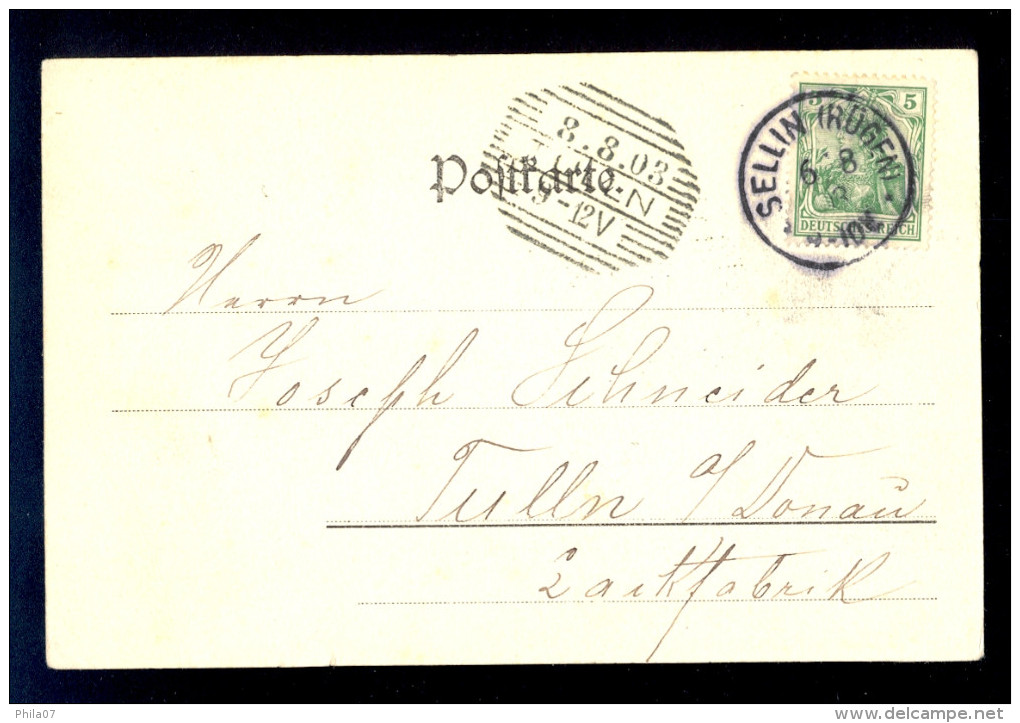 5 5
DEUTSCHES REICH
SELLIN (RÜGEN)
6 8
03
8.8.03
9-12V
Postkarte.
Herrn
Joseph Schneider
Tulln a/Donau
Lackfabrik
Phila07
www.delcampe.net